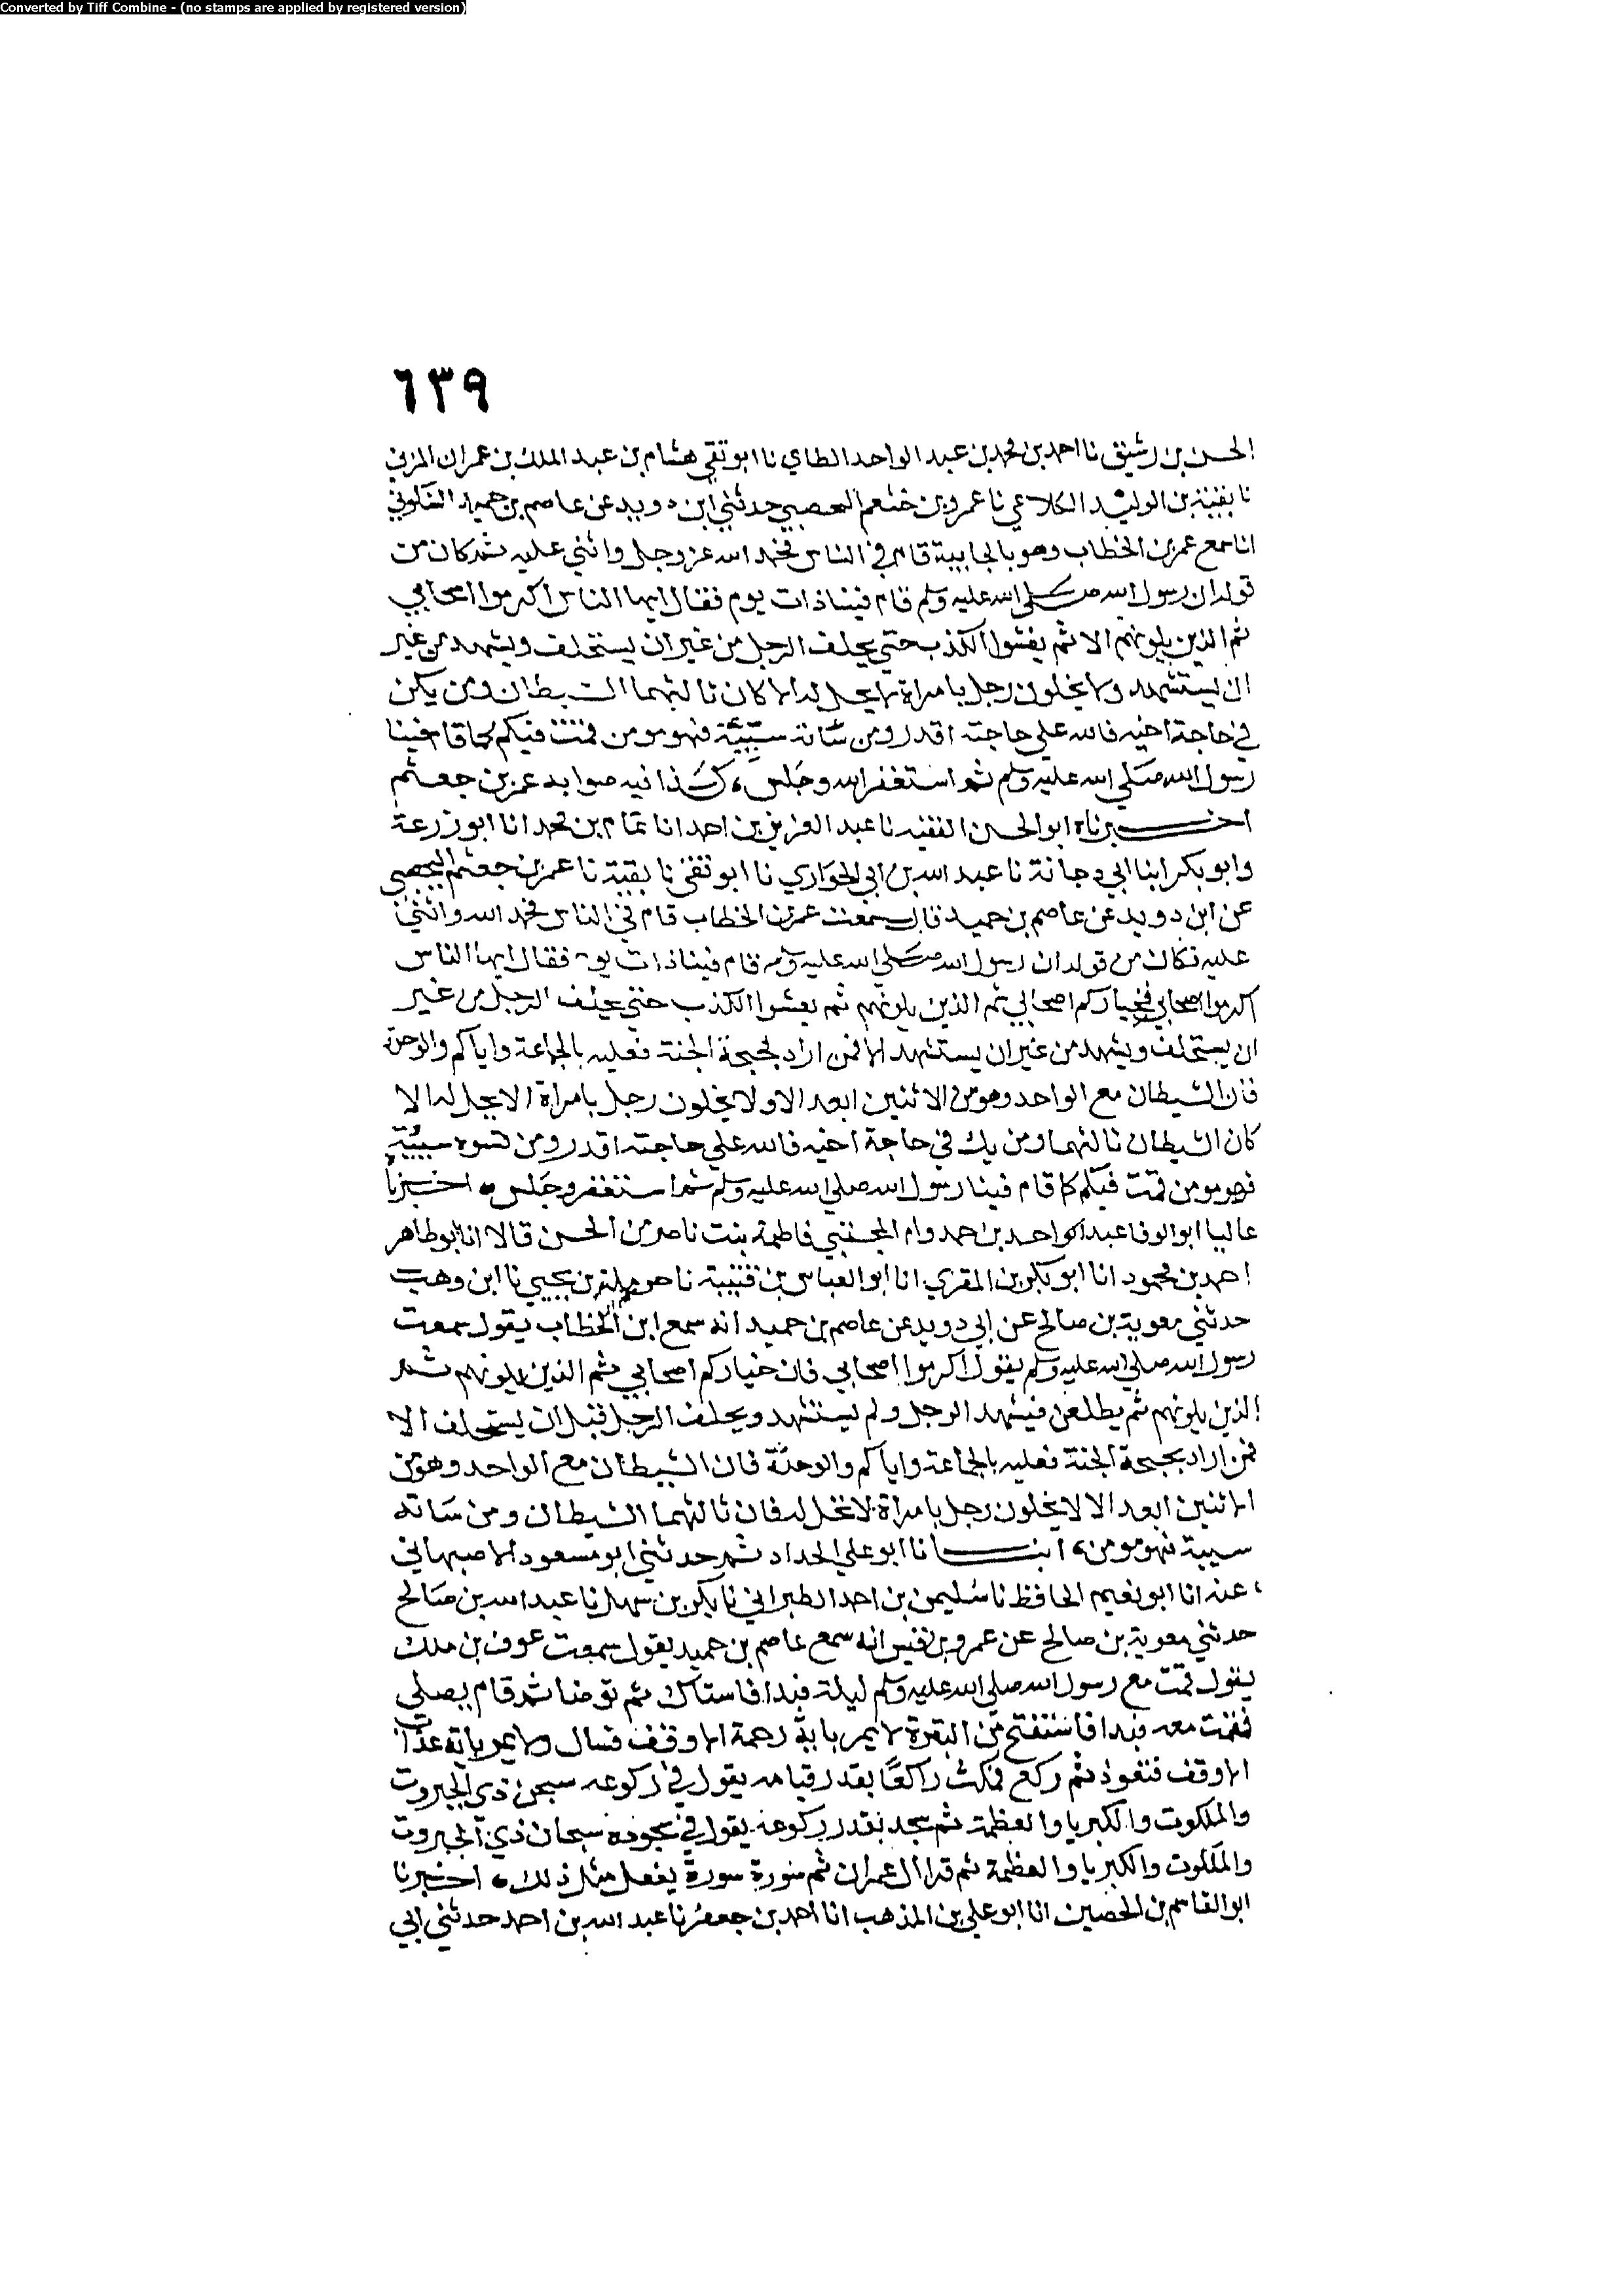 Converted by Tiff Combine - (no stamps are applied by registered version)
٦٣٩
الحسن بن رشيق نا احمد بن محمد بن عبد الواحد الطاي نا ابو تقي هشام بن عبد الملك بن عمران المزني
نا بقية بن الوليد الكلاعي نا عمرو بن خثعم اليحصبي حدثني ابن دويد عن عاصم بن حميد السكوني
انا سمع عمر بن الخطاب وهو بالجابية قام في الناس فحمد الله عز وجل واثني عليه ثم كان من
قوله ان رسول الله صلى الله عليه وسلم قام فينا ذات يوم فقال ايها الناس اكرموا اصحابي
ثم الذين يلونهم الا ثم يفشوا الكذب حتي يحلف الرجل من غير ان يستحلف ويشهد من غير
ان يستشهد ولا يخلون رجل بامراة لا يحل له الا كان ثالثهما الشيطان ومن يكن
في حاجة اخيه فالله علي حاجته اقدر ومن سانه سيئة فهو مومن قمت فيكم كما قام فينا
رسول الله صلي الله عليه وسلم ثم استغفر الله وجلس كذا فيه صوابه عمر بن جعثم
اخبرناه ابو الحسن الفقيه نا عبد العزيز بن احمد انا تمام بن محمد انا ابو زرعة
وابو بكر ابنا ابي دجانة نا عبد الله بن ابي الحواري نا ابو تقي نا بقية نا عمر بن جعثم اليحصبي
عن ابن دويد عن عاصم بن حميد قال سمعت عمر بن الخطاب قام في الناس فحمد الله واثني
عليه فكان من قوله ان رسول الله صلي الله عليه وسلم قام فينا ذات يوم فقال ايها الناس
اكرموا اصحابي فخياركم اصحابي ثم الذين يلونهم ثم يفشوا الكذب حتي يحلف الرجل من غير
ان يستحلف ويشهد من غير ان يستشهد الا فمن اراد بحبحة الجنة فعليه بالجماعة واياكم والوحدة
فان الشيطان مع الواحد وهو من الاثنين ابعد الا ولا يخلون رجل بامراة لا يحل له الا
كان الشيطان ثالثهما ومن يك في حاجة اخيه فالله علي حاجته اقدر ومن تسوه سيئة
فهو مومن قمت فيكم كما قام فينا رسول الله صلي الله عليه وسلم ثم استغفر وجلس اخبرنا
عاليا ابو الوفا عبد الواحد بن احمد وام المجتبي فاطمة بنت ناصر بن الحسن قالا انا ابو طاهر
احمد بن محمود انا ابو بكر بن المقري انا ابو العباس بن قتيبة نا حرملة بن يحيي نا ابن وهب
حدثني معوية بن صالح عن ابي دويد عن عاصم بن حميد انه سمع ابن الخطاب يقول سمعت
رسول الله صلي الله عليه وسلم يقول اكرموا اصحابي فان خياركم اصحابي ثم الذين يلونهم ثم
الذين يلونهم ثم يطلعن فيشهد الرجل ولم يستشهد ويحلف الرجل قبل ان يستحلف الا
فمن اراد بحبحة الجنة فعليه بالجماعة واياكم والوحدة فان الشيطان مع الواحد وهو من
الاثنين ابعد الا لا يخلون رجل بامراة لا تحل له فان ثالثهما الشيطان ومن ساته
سيية فهو مومن انبانا ابو علي الحداد ثم حدثني ابو مسعود الاصبهاني
عنه انا ابو نعيم الحافظ نا سليمن بن احمد الطبراني نا بكر بن سهل نا عبد الله بن صالح
حدثني معوية بن صالح عن عمرو بن قيس انه سمع عاصم بن حميد يقول سمعت عوف بن ملك
يقول قمت مع رسول الله صلي الله عليه وسلم ليلة فبدا فاستاك ثم توضا ثم قام يصلي
فقمت معه فبدا فاستفتح من البقرة لا يمر باية رحمة الا وقف فسال ولا يمر باية عذاب
الا وقف فتعوذ ثم ركع فمكث راكعا بقدر قيامه يقول في ركوعه سبحن ذي الجبروت
والملكوت والكبريا والعظمة ثم سجد بقدر ركوعه يقول في سجوده سبحان ذي الجبروت
والملكوت والكبريا والعظمة ثم قرا ال عمران ثم سورة سورة يفعل مثل ذلك اخبرنا
ابو القاسم بن الحصين انا ابو علي بن المذهب انا احمد بن جعفر نا عبد الله بن احمد حدثني ابي